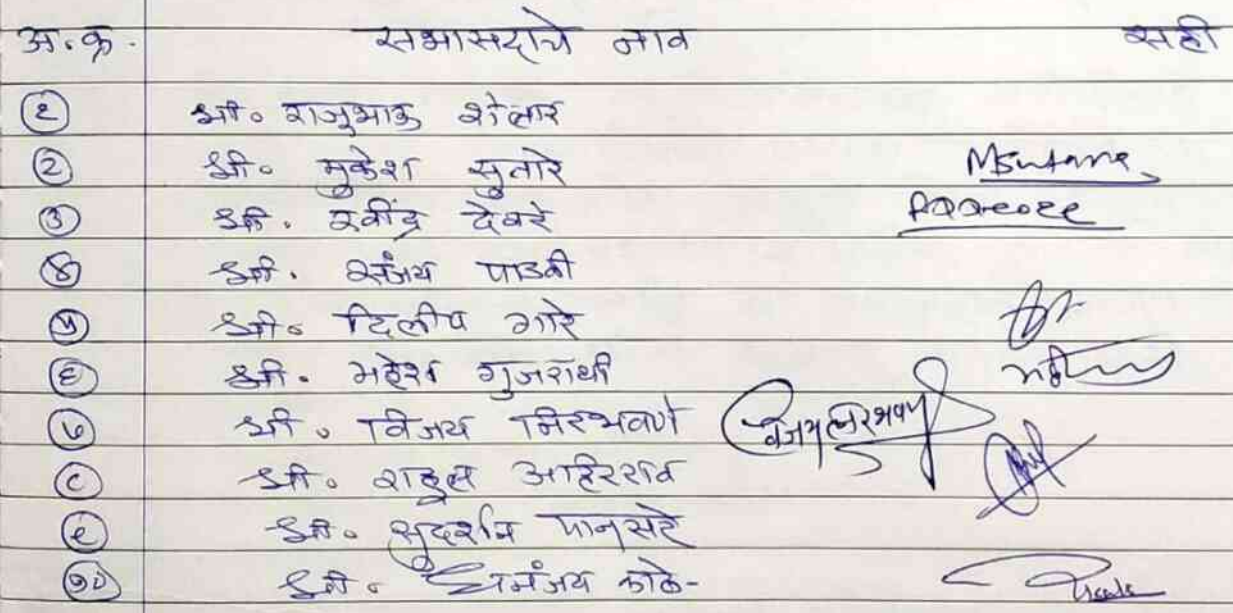 अ.क्र. सभासदाचे नाव सही
१ श्री. राजुभाऊ शेलार
२ श्री. मुकेश सुतारे
३ श्री. रवींद्र देवरे
४ श्री. संजय पाडवी
५ श्री. दिलीप गारे
६ श्री. महेश गुजराथी
७ श्री. विजय निरभवणे
८ श्री. राहुल आहिरराव
९ श्री. सुदर्शन पानसरे
१० श्री. धनंजय काळे-